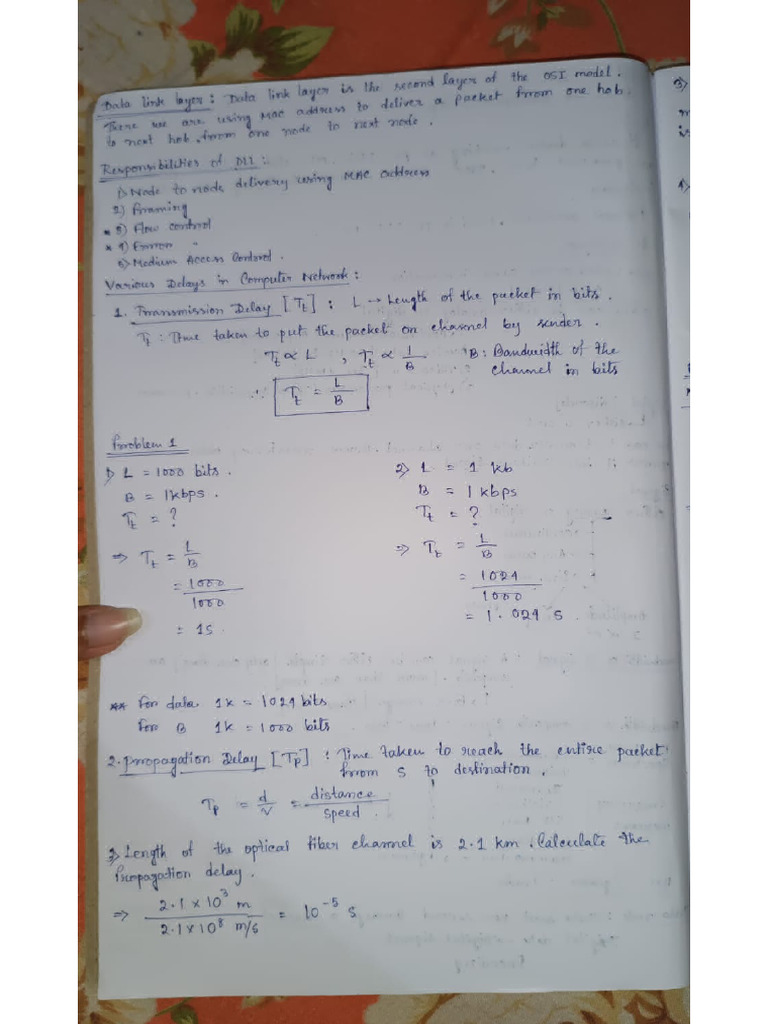 Data link layer : Data link layer is the second layer of the OSI model.
There we are using MAC address to deliver a packet from one hob
to next hob, from one node to next node.
Responsibilities of DLL :
1) Node to node delivery using MAC address
2) Framing
* 3) Flow control
* 4) Error "
5) Medium Access Control.
Various Delays in Computer Network :
1. Transmission Delay [Tt] : L → Length of the packet in bits.
Tt : Time taken to put the packet on channel by sender.
Tt ∝ L , Tt ∝ 1/B B : Bandwidth of the
channel in bits
∴ Tt = L/B
Problem 1
1) L = 1000 bits.
B = 1kbps.
Tt = ?
⇒ Tt = L/B
= 1000/1000
= 1s.
2) L = 1 kb
B = 1 kbps
Tt = ?
⇒ Tt = L/B
= 1024/1000
= 1.024 s
** For data 1k = 1024 bits
For B 1k = 1000 bits
2. Propagation Delay [Tp] : Time taken to reach the entire packet
from S to destination.
Tp = d/v = distance/speed
2) Length of the optical fiber channel is 2.1 km. Calculate the
Propagation delay.
⇒ 2.1 × 10³ m / 2.1 × 10⁸ m/s = 10⁻⁵ s